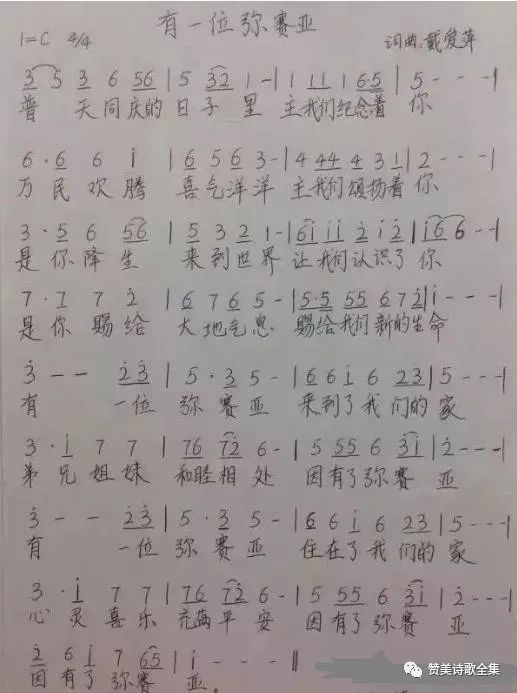 有一位弥赛亚
1=C 4/4 词曲:戴爱萍
3 5 3 6 56 | 5 32 1 - | 1 11 1 6·5 | 5 - - - |
普 天同庆的 日子 里 主我们纪念着 你
6·6 6 i | 6 5 6 3 - | 4 44 4 3 1 | 2 - - - |
万民欢腾 喜气洋洋 主我们颂扬着你
3·5 6 56 | 5 3 2 1 - | 6i ii 2̇ i 2̇ | i6 6 - - |
是你降生 来到世界 让我们认识了你
7·7 7 2̇ | 6 7 6 5 - | 5·5 55 6 7 2̇ | i - - - |
是你赐给 大地气息 赐给我们新的生命
3̇ - - 2̇3̇ | 5·3 5 - | 6 6 i 6 23 | 5 - - - |
有 一位 弥赛亚 来到了我们的家
3·i 7 7 | 76 72̇ 6 - | 5 55 6 3̇i | 2̇ - - - |
弟兄姐妹 和睦相处 因有了弥赛 亚
3̇ - - 2̇3̇ | 5·3 5 - | 6 6 i 6 23 | 5 - - - |
有 一位 弥赛亚 住在了我们的家
3·i 7 7 | 76 72̇ 6 - | 5 55 6 3̇i | 2̇ - - - |
心灵喜乐 充满平安 因有了弥赛 亚
2̇ 6 i 7 65 | i - - - ||
因有了弥赛 亚。
赞美诗歌全集